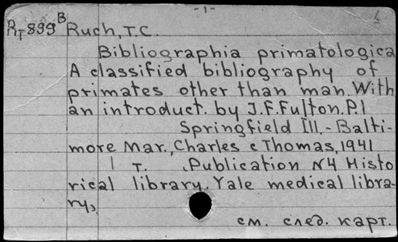 - 1 -
RT899 B Ruch, T.C.
Bibliographia primatologica
A classified bibliography of
primates other than man. With
an introduct. by J.F.Fulton. P.1
Springfield Ill. - Balti-
more Mar., Charles c Thomas, 1941
1 т. .Publication N4 Histo
rical library. Yale medical libra-
ry,
см. след. карт.